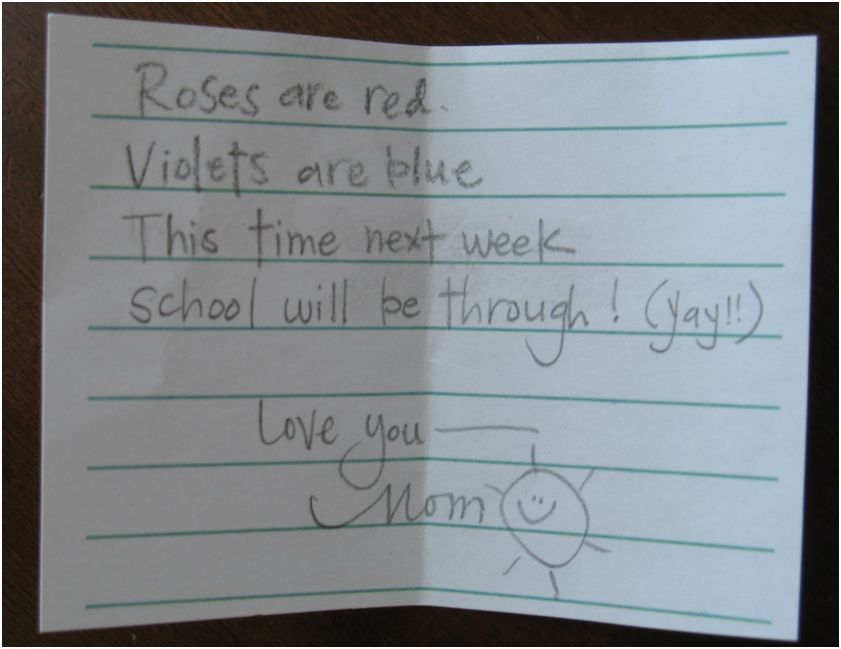 Roses are red.
Violets are blue
This time next week
school will be through! (yay!!)
Love you —
Mom